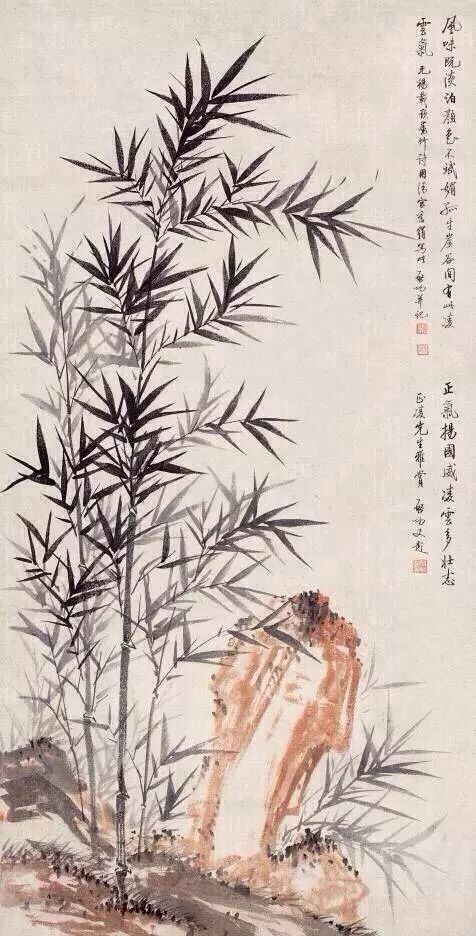 風味既淡泊顏色不斌媚孤生崖谷間有此凌
雲氣 元楊載題竹詩用清宮舊絹寫 啟功并記
正氣揚國威凌雲多壯志
正凌先生雅賞 啟功又題